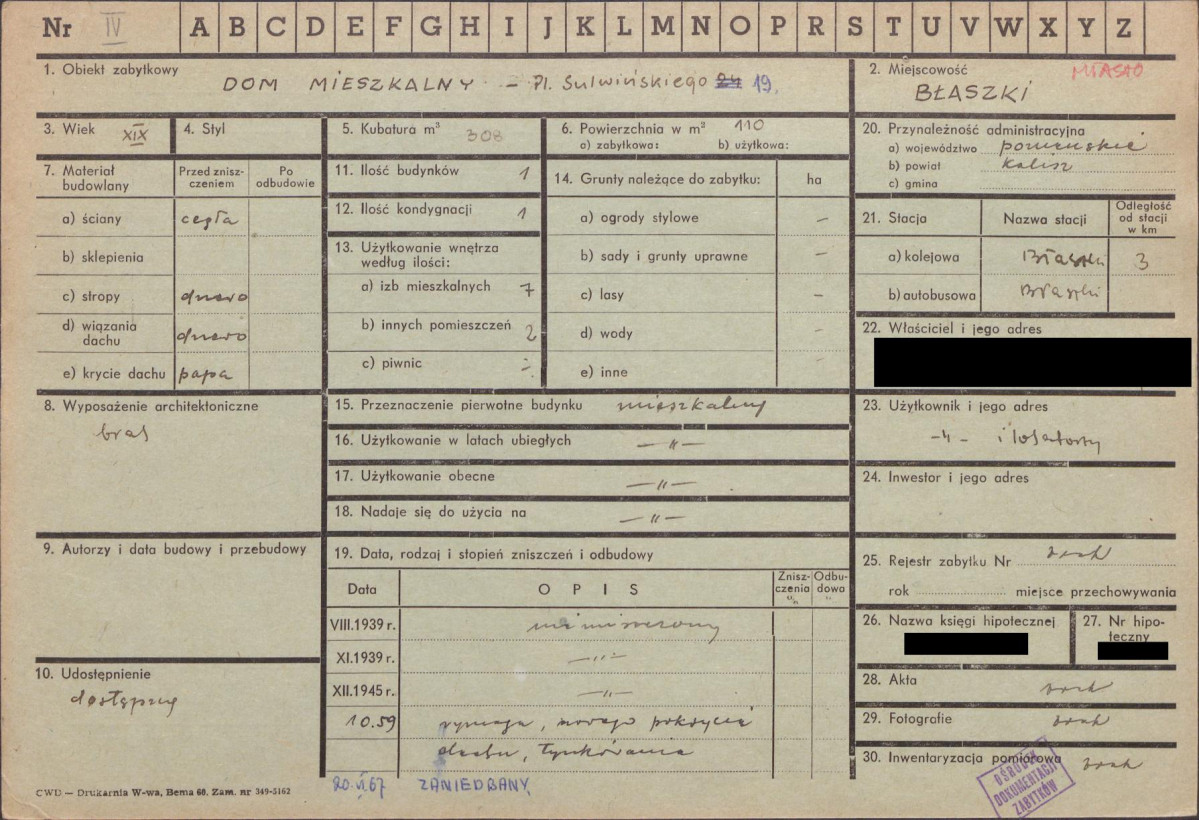 Nr IV A B C D E F G H I J K L M N O P R S T U V W X Y Z
1. Obiekt zabytkowy DOM MIESZKALNY – Pl. Sulwińskiego 24 19.
2. Miejscowość MIASTO
BŁASZKI
3. Wiek XIX
4. Styl
5. Kubatura m³ 308
6. Powierzchnia w m² 110
a) zabytkowa: b) użytkowa:
20. Przynależność administracyjna
a) województwo poznańskie
b) powiat Kalisz
c) gmina
7. Materiał budowlany
Przed znisz-
czeniem
Po
odbudowie
a) ściany cegła
b) sklepienia
c) stropy drewno
d) wiązania
dachu drewno
e) krycie dachu papa
11. Ilość budynków 1
12. Ilość kondygnacji 1
13. Użytkowanie wnętrza
według ilości:
a) izb mieszkalnych 7
b) innych pomieszczeń 2
c) piwnic -
14. Grunty należące do zabytku: ha
a) ogrody stylowe –
b) sady i grunty uprawne –
c) lasy –
d) wody -
e) inne
21. Stacja Nazwa stacji
Odległość
od stacji
w km
a) kolejowa Błaszki 3
b) autobusowa Błaszki
22. Właściciel i jego adres
8. Wyposażenie architektoniczne
brak
15. Przeznaczenie pierwotne budynku mieszkalny
16. Użytkowanie w latach ubiegłych –„–
17. Użytkowanie obecne –„–
18. Nadaje się do użycia na –„–
23. Użytkownik i jego adres
-„- i lokatorzy
24. Inwestor i jego adres
9. Autorzy i data budowy i przebudowy
19. Data, rodzaj i stopień zniszczeń i odbudowy
Data OPIS
Znisz-
czenia
%
Odbu-
dowa
%
VIII.1939 r. nie niszczony
XI.1939 r. –„–
XII.1945 r. –„–
10.59 wymaga, nowego pokrycia
dachu, tynkowania
20.VI.67 ZANIEDBANY
25. Rejestr zabytku Nr brak
rok miejsce przechowywania
26. Nazwa księgi hipotecznej
27. Nr hipo-
teczny
10. Udostępnienie
dostępny
28. Akta brak
29. Fotografie brak
30. Inwentaryzacja pomiarowa brak
OŚRODEK
DOKUMENTACJI
ZABYTKÓW
CWD — Drukarnia W-wa, Bema 60. Zam. nr 349-5162